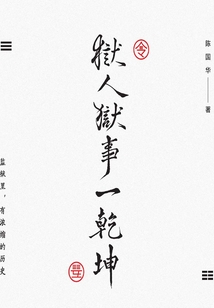 獄人獄事一乾坤
陈国华 著
监狱里，有浓缩的历史